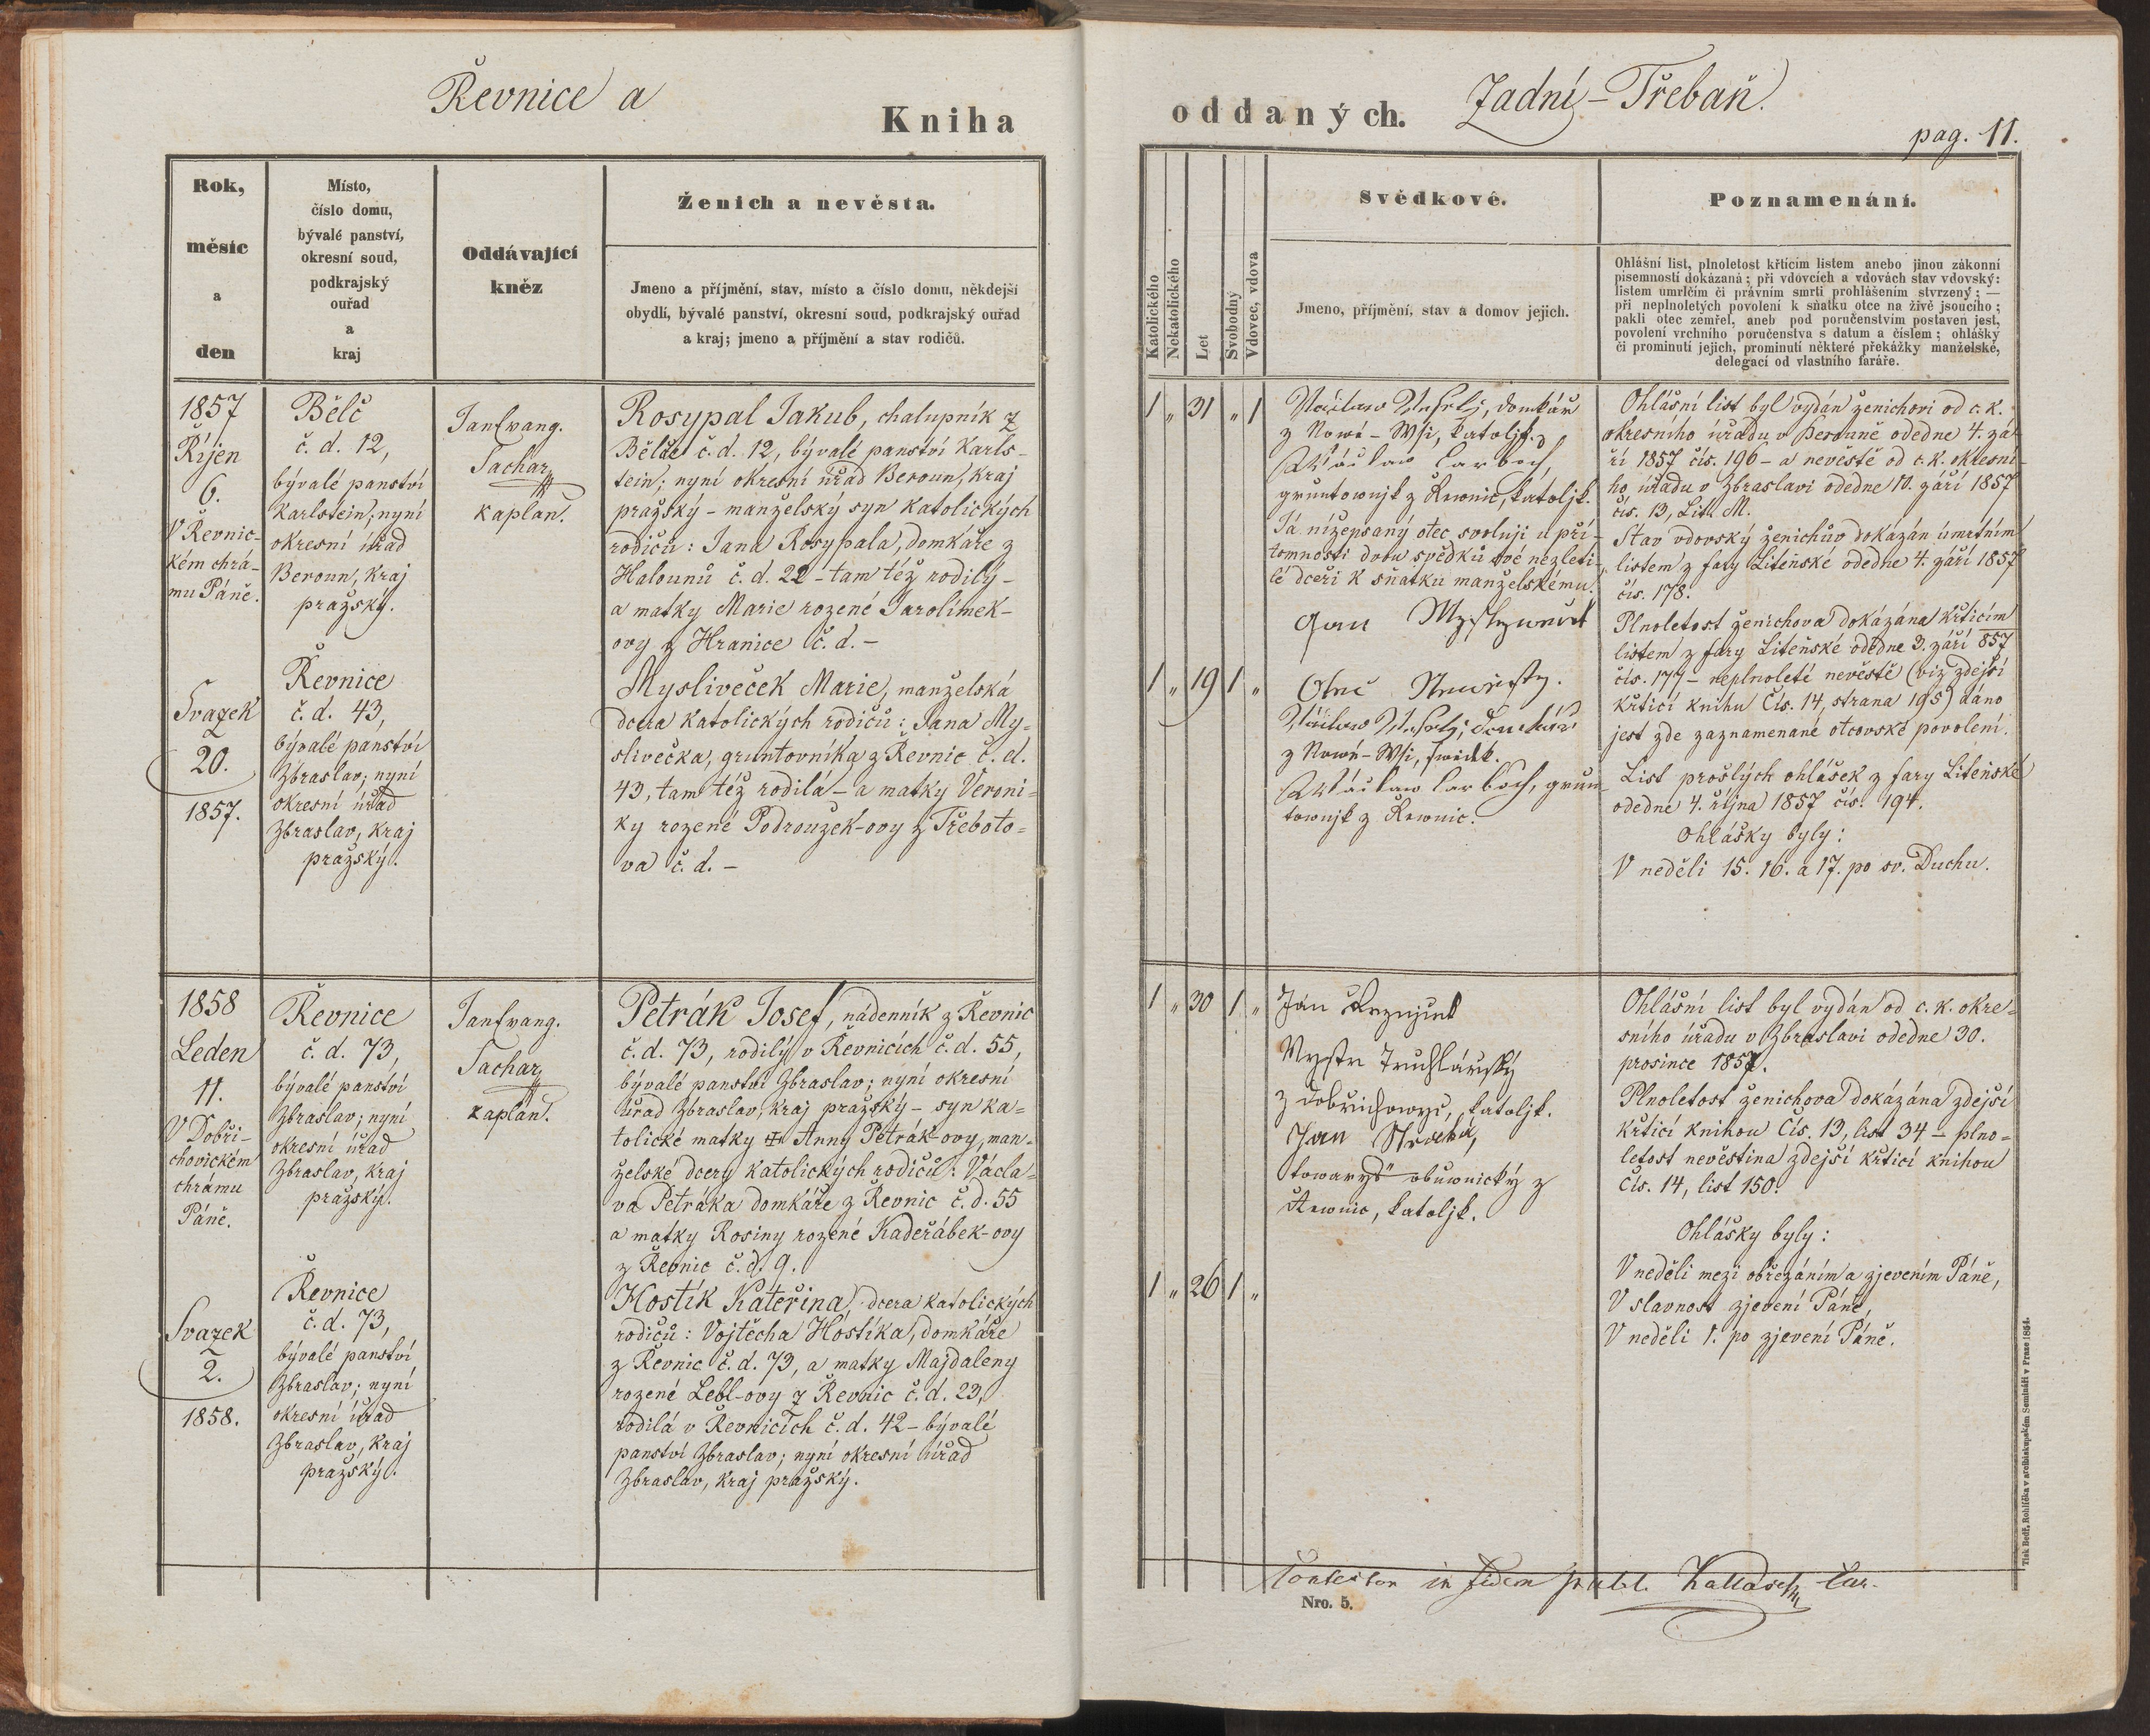 Řevnice a
Kniha
Rok,
měsíc
a
den
Místo,
číslo domu,
bývalé panství,
okresní soud,
podkrajský
ouřad
a
kraj
Oddávající
kněz
Ženich a nevěsta.
Jmeno a příjmění, stav, místo a číslo domu, někdejší
obydlí, bývalé panství, okresní soud, podkrajský ouřad
a kraj; jmeno a příjmění a stav rodičů.
1857
Říjen
6.
V Řevnic-
kém chrá-
mu Páně.
Svazek
20.
1857.
Bělč
č. d. 12,
bývalé panství
Karlstein; nyní
okresní úřad
Beroun, kraj
pražský.
Řevnice
č. d. 43,
bývalé panství
Zbraslav; nyní
okresní úřad
Zbraslav, kraj
pražský.
Jan Evang.
Tachar
kaplan.
Rosypal Jakub, chalupník z
Bělče č. d. 12, bývalé panství Karls-
tein; nyní okresní úřad Beroun, kraj
pražský – manželský syn katolických
rodičů: Jana Rosypala, domkáře z
Halounů č. d. 22 – tam též rodilý –
a matky Marie rozené Jarolímek-
ovy z Hranice č. d. –
Mysliveček Marie, manželská
dcera katolických rodičů: Jana My-
slivečka, gruntovníka z Řevnic č. d.
43, tam též rodilá – a matky Veroni-
ky rozené Podrouzek-ovy z Třeboto-
va č. d. –
1858
Leden
11.
V Dobři-
chovickém
chrámu
Páně.
Svazek
2.
1858.
Řevnice
č. d. 73,
bývalé panství
Zbraslav; nyní
okresní úřad
Zbraslav, kraj
pražský.
Řevnice
č. d. 73,
bývalé panství
Zbraslav; nyní
okresní úřad
Zbraslav, kraj
pražský.
Jan Evang.
Tachar
kaplán.
Petrák Josef, nádenník z Řevnic
č. d. 73, rodilý v Řevnicích č. d. 55,
bývalé panství Zbraslav; nyní okresní
úřad Zbraslav, kraj pražský – syn ka-
tolické matky Anny Petrák-ovy, man-
želské dcery katolických rodičů: Václa-
va Petráka domkáře z Řevnic č. d. 55
a matky Rosiny rozené Kadeřábek-ovy
z Řevnic č. d. 9.
Hostík Kateřina, dcera katolických
rodičů: Vojtěcha Hostíka, domkáře
z Řevnic č. d. 73, a matky Majdaleny
rozené Lebl-ovy z Řevnic č. d. 23,
rodilá v Řevnicích č. d. 42 – bývalé
panství Zbraslav; nyní okresní úřad
Zbraslav, kraj pražský.
oddaných.
Zadní-Třebaň.
pag. 11.
Katolického
Nekatolického
Let
Svobodný
Vdovec, vdova
Svědkové.
Jmeno, příjmění, stav a domov jejich.
Poznamenání.
Ohlášní list, plnoletost křtícím listem anebo jinou zákonní
písemností dokázaná; při vdovcích a vdovách stav vdovský:
listem umrlčím či právním smrti prohlášením stvrzený; —
při neplnoletých povolení k sňatku otce na živě jsoucího;
pakli otec zemřel, aneb pod poručenstvím postaven jest,
povolení vrchního poručenstva s datum a číslem; ohlášky
či prominutí jejich, prominutí některé překážky manželské,
delegací od vlastního faráře.
1 „ 31 „ 1
Václaw domkář
z Nowé-Wsi, katoljk.
Wáclaw
gruntownjk z Řewnic, katoljk.
Já nížepsaný otec svoluji u pří-
tomnosti dvou svědků své nezleti-
lé dceři k sňatku manželskému.
Jan
1 „ 19 1 „
Otec Newěsty.
Václaw domkář
z Nowé-Wsi, swědek.
Wáclaw grun-
townjk z Řewnic.
Ohlášní list byl vydán ženichovi od c. k.
okresního úřadu v Berouně odedne 4. zá-
ří 1857 čís. 196 – a nevěstě od c. k. okresní-
ho úřadu v Zbraslavi odedne 10. září 1857
čís. 13, Lit. M.
Stav vdovský ženichův dokázán úmrtním
listem z fary Liteňské odedne 4. září 1857
čís. 178.
Plnoletost ženichova dokázána křticím
listem z fary Liteňské odedne 3. září 857
čís. 177 – neplnoleté nevěstě (viz zdejší
křticí knihu Čís. 14, strana 195) dáno
jest zde zaznamenané otcovské povolení.
List prošlých ohlášek z fary Liteňské
odedne 4. října 1857 čís. 194.
Ohlášky byly:
V neděli 15. 16. a 17. po sv. Duchu.
1 „ 30 1 „
Jan
Mystr Truhlářský
z Dobřichowyc, katoljk.
Jan
towaryš obuwnický z
Řewnic, katoljk.
1 „ 26 1 „
Ohlášní list byl vydán od c. k. okre-
sního úřadu v Zbraslavi odedne 30.
prosince 1857.
Plnoletost ženichova dokázána zdejší
křticí knihou Čís. 13, list 34 – plno-
letost nevěstina zdejší křticí knihou
Čís. 14, list 150.
Ohlášky byly:
V neděli mezi obřezáním a zjevením Páně,
V slavnost zjevení Páně,
V neděli 1. po zjevení Páně.
in fidem
Nro. 5.
Tisk Bedř. Rohlíčka v arcibiskupském Semináři v Praze 1854.